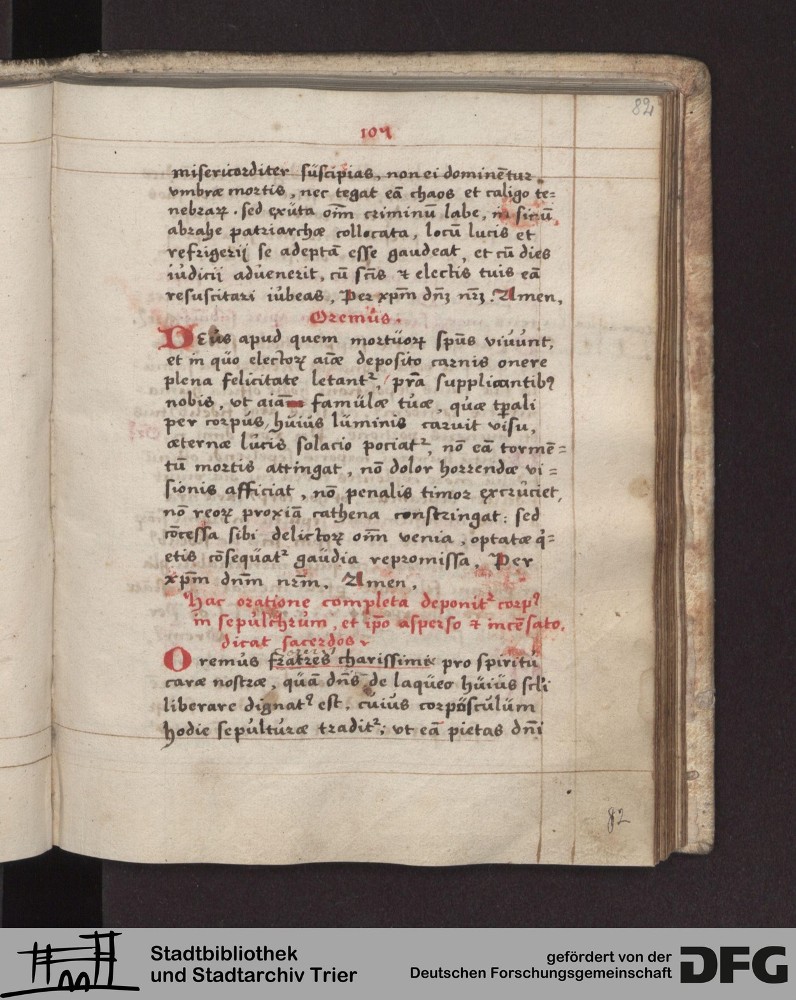 82
105
misericorditer suscipias, non ei dominētur
vmbræ mortis, nec tegat eā chaos et caligo te=
nebrarꝝ. sed exuta oīm criminū labe, in sinū
abrahe patriarchæ collocata, locū lucis et
refrigerij se adeptā esse gaudeat, et cū dies
iudicii aduenerit, cū sctīs ⁊ electis tuis eā
resuscitari iubeas, Per xpm̄ dn̄ꝫ nr̄ꝫ. Amen,
Oremus.
Deus apud quem mortuorꝝ spūs viuunt,
et in quo electorꝝ aīæ deposito carnis onere
plena felicitate letant᷑, pr̄a supplicantibꝰ
nobis, vt aīam famulæ tuæ, quæ tp̄ali
per corpus, huius luminis caruit visu,
æternæ lucis solacio pociat᷑, nō eā tormē=
tū mortis attingat, nō dolor horrendæ vi=
sionis afficiat, nō penalis timor excruciet,
nō reorꝝ proxiā cathena constringat: sed
cōcessa sibi delictorꝝ oīm venia, optatæ q̇=
etis cōsequat᷑ gaudia repromissa, Per
xpm̄ dnm̄ nrm̄, Amen,
Hac oratione completa deponit᷑ corpꝰ
in sepulchrum, et ip̄o asperso ⁊ incēsato,
dicat sacerdos
Oremus fratres charissimi pro spiritu
caræ nostræ, quā dn̄s de laqueo huius scl̄i
liberare dignatꝰ est, cuius corpusculum
hodie sepulturæ tradit᷑: vt eā pietas dn̄i
82
Stadtbibliothek
und Stadtarchiv Trier
gefördert von der
Deutschen Forschungsgemeinschaft
DFG